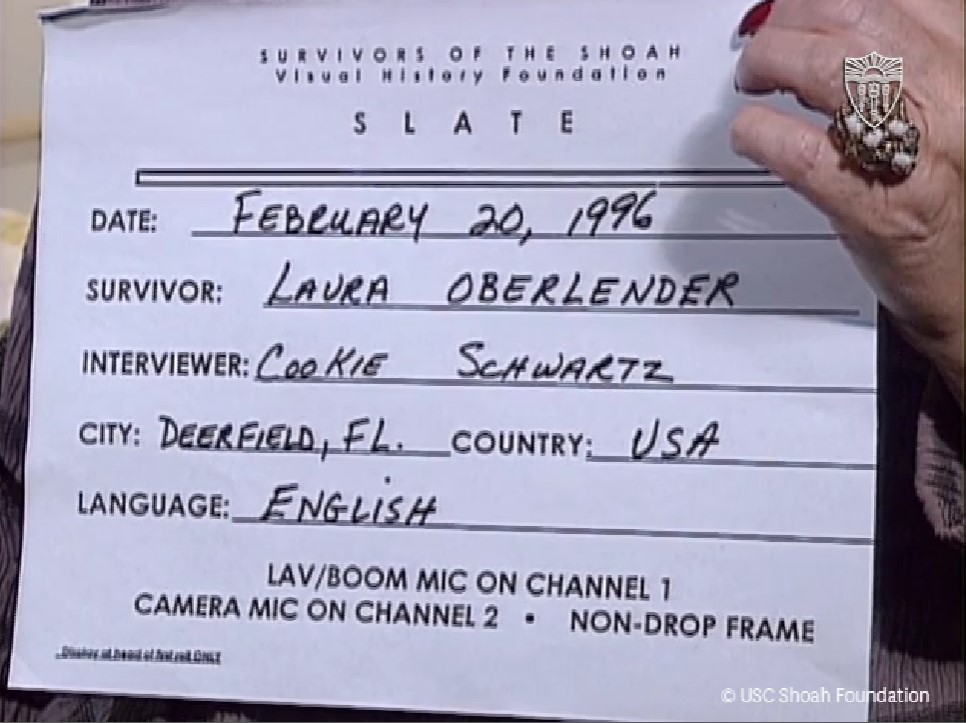 SURVIVORS OF THE SHOAH
Visual History Foundation
SLATE
DATE: FEBRUARY 20, 1996
SURVIVOR: LAURA OBERLENDER
INTERVIEWER: COOKIE SCHWARTZ
CITY: DEERFIELD, FL. COUNTRY: USA
LANGUAGE: ENGLISH
LAV/BOOM MIC ON CHANNEL 1
CAMERA MIC ON CHANNEL 2 • NON-DROP FRAME
Display at head of first reel ONLY
© USC Shoah Foundation